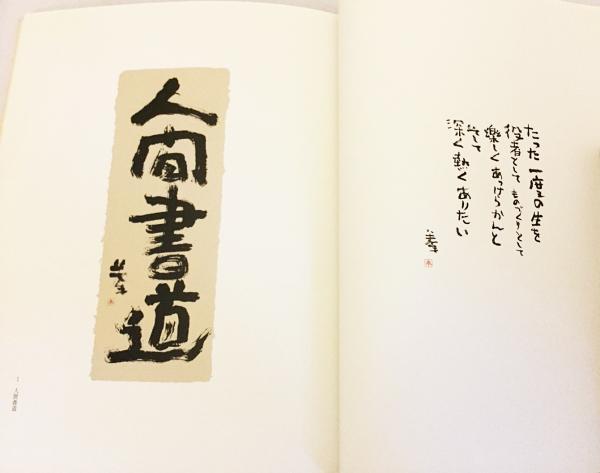 人間書道
1 人間書道
たった一度の生を
役者として ものづくりとして
楽しく あっけらかんと
そして
深く 熱く ありたい